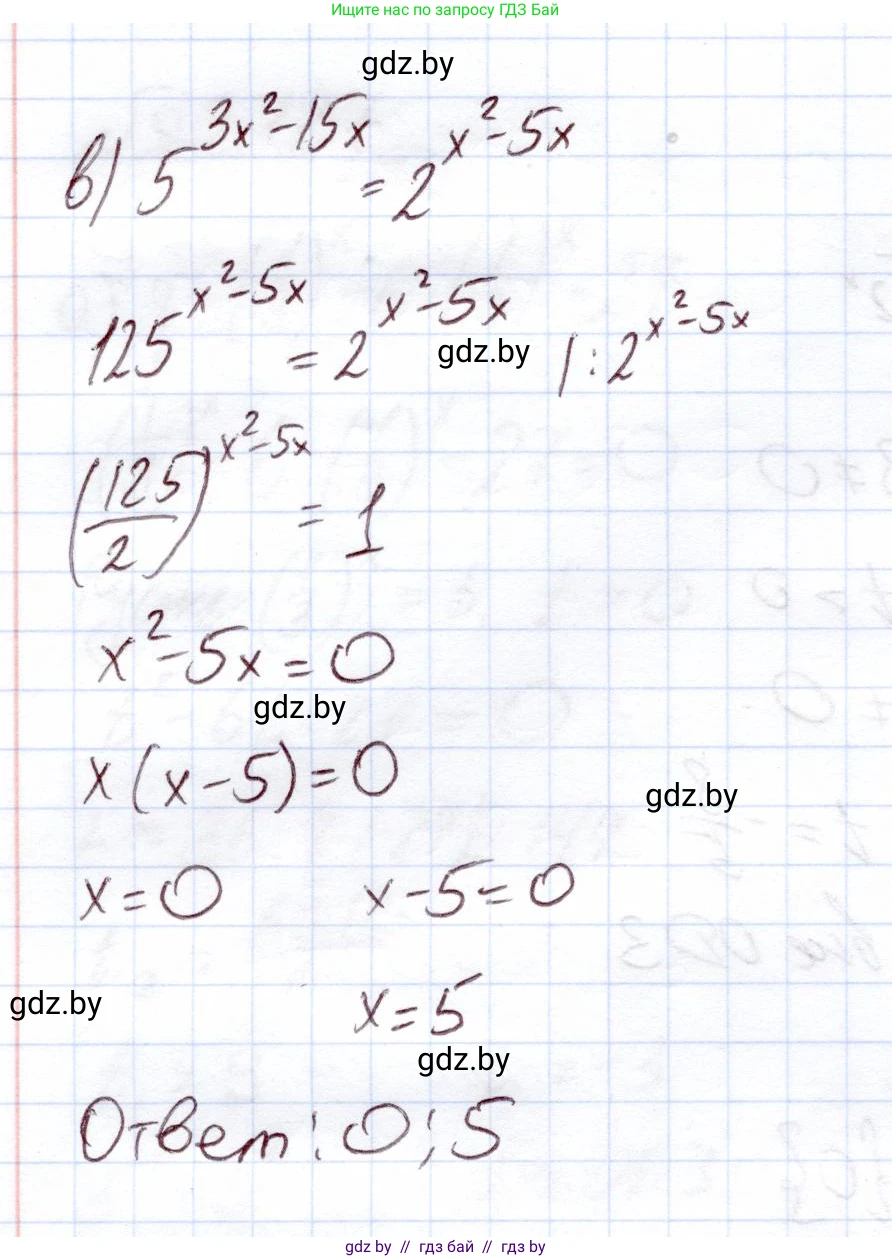 Ищите нас по запросу ГДЗ Бай
gdz.by
в) 5^(3x²-15x) = 2^(x²-5x)
125^(x²-5x) = 2^(x²-5x) |: 2^(x²-5x)
gdz.by
(125/2)^(x²-5x) = 1
x²-5x=0
gdz.by
x(x-5)=0
gdz.by
x=0 x-5=0
gdz.by
x=5
gdz.by
Ответ: 0; 5
gdz.by // гдз бай // гдз by